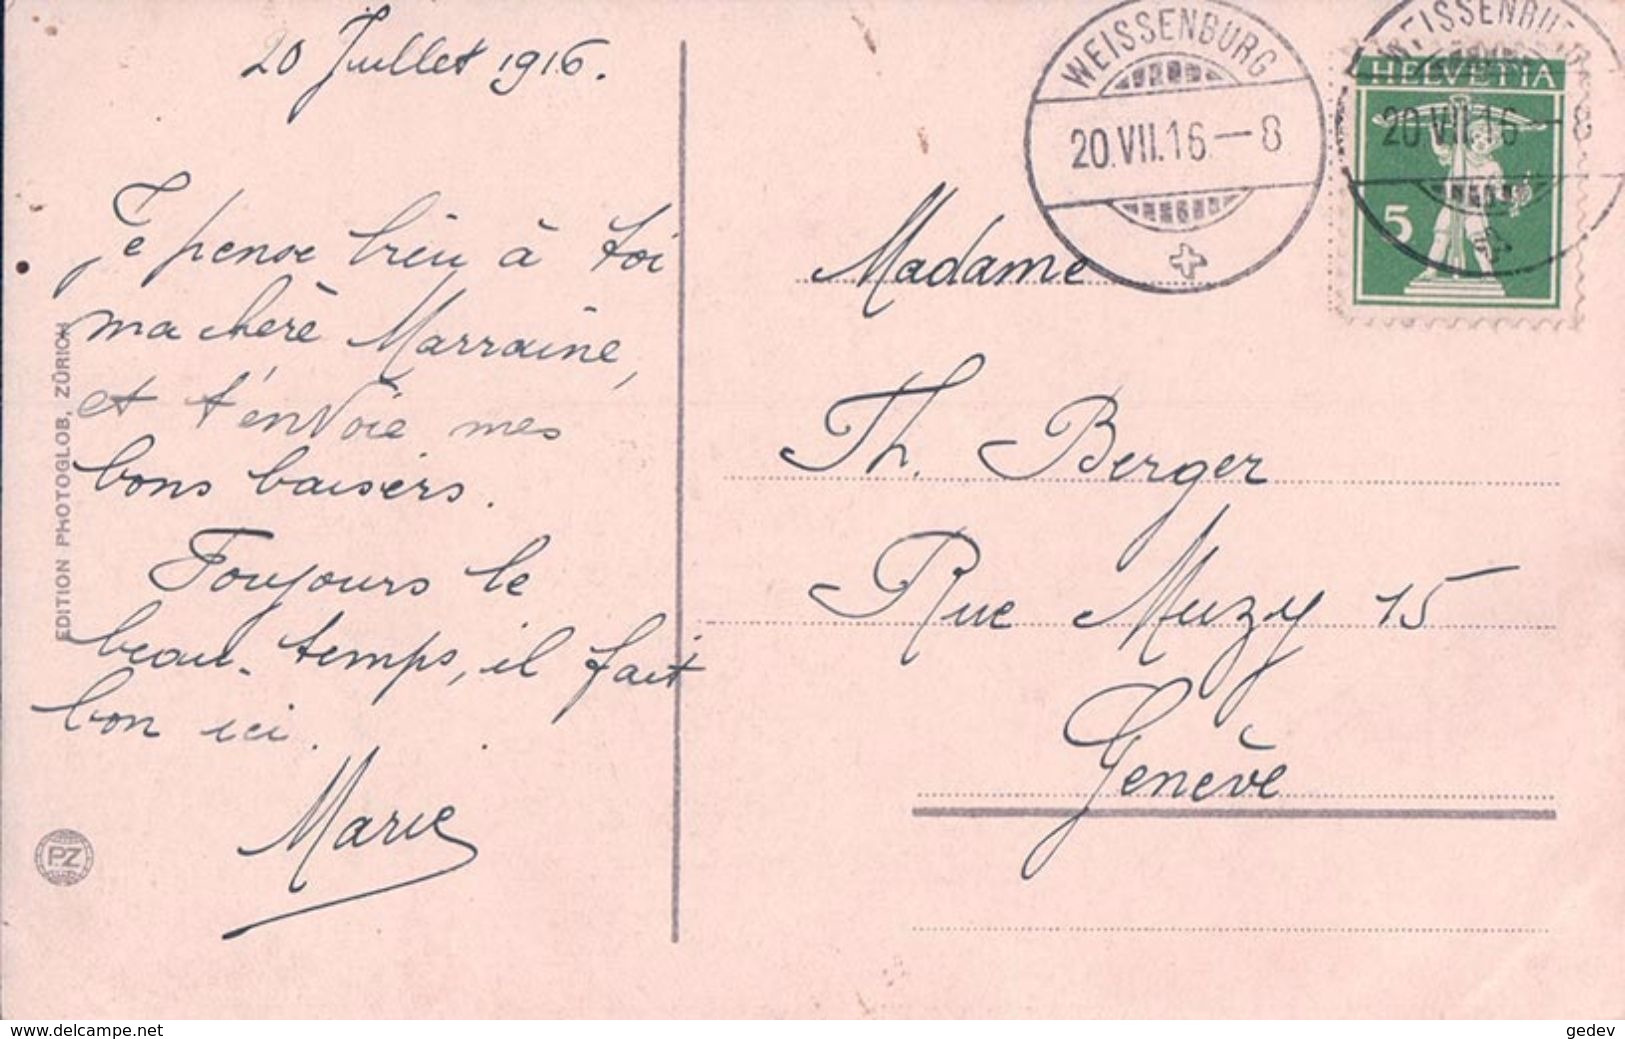 20 Juillet 1916.
Je pense bien à toi
ma chère Marraine,
et t'envoie mes
bons baisers.
Toujours le
beau-temps, il fait
bon ici.
Marie
EDITION PHOTOGLOB, ZÜRICH
PZ
WEISSENBURG
20.VII.16-8
WEISSENBURG
20.VII.16-8
HELVETIA
5
Madame
Th. Berger
Rue Muzy 15
Genève
www.delcampe.net
gedev